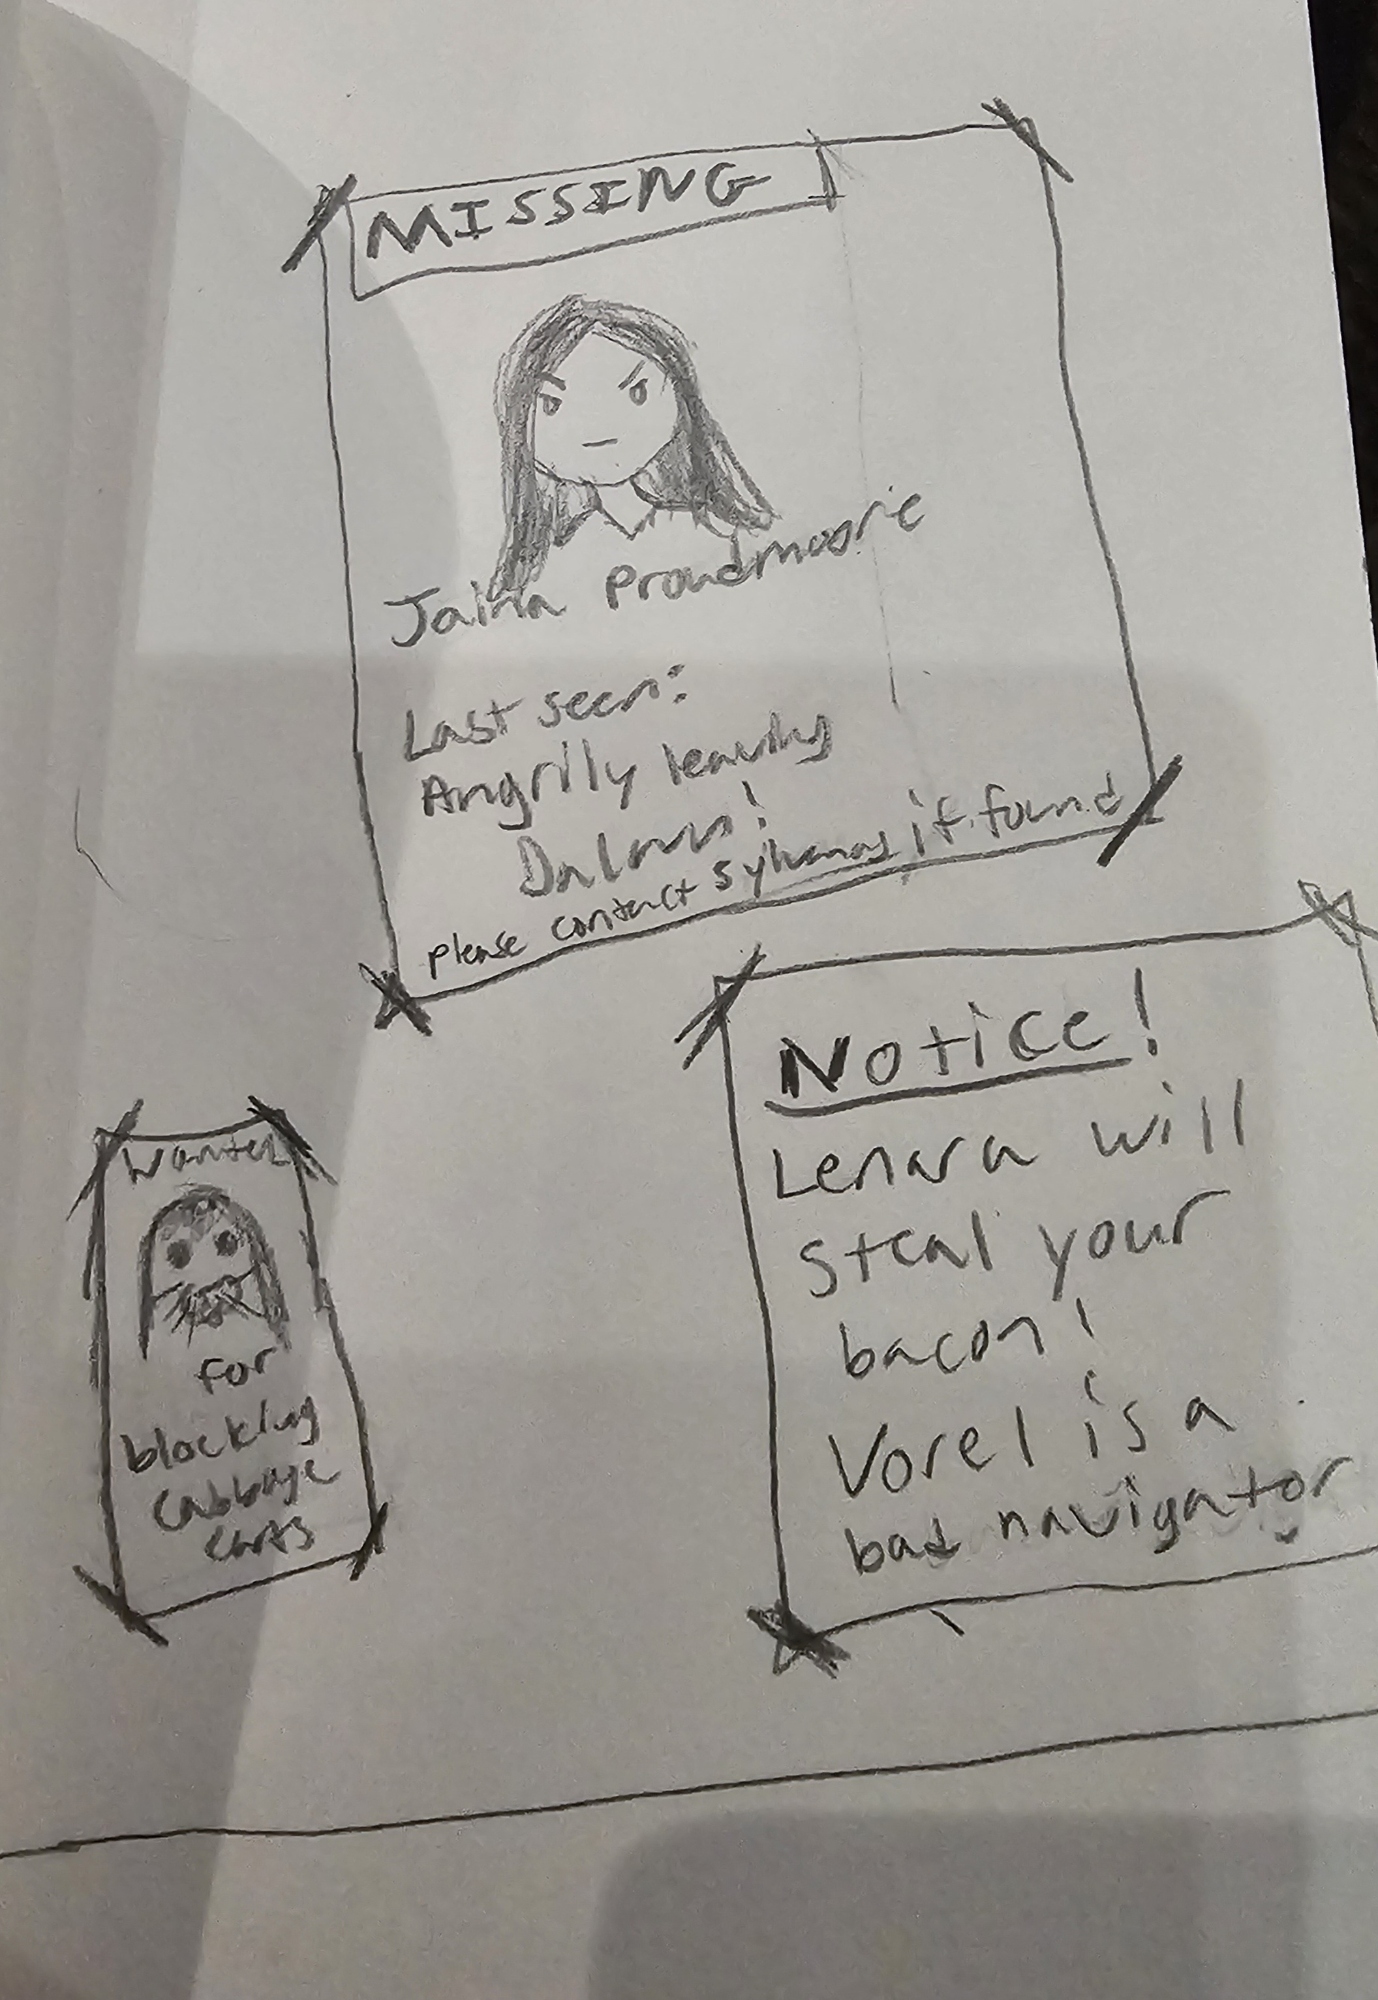 MISSING
Jaina Proudmoore
Last seen:
Angrily leaving
Dalaran!
please contact Sylvanas if found
Notice!
Lenara will
steal your
bacon!
Vorel is a
bad navigator
Wanted
for
blocking
cabbage
carts